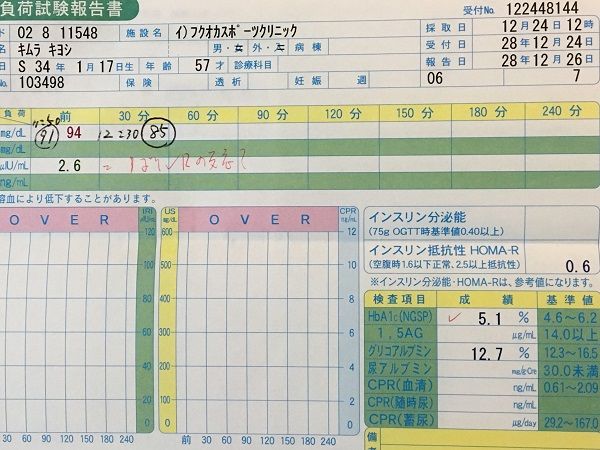 負荷試験報告書
受付No. 122448144
ド 02 8 11548 施設名 イ)フクオカスポーツクリニック 採取日 12月24日12時
名 キムラ キヨシ 男・女 外・入 病棟 受付日 28年12月24日
日 S 34年 1月17日生 年齢 57才 診療科目 報告日 28年12月26日
No. 103498 保険 透析 妊娠 週 06 7
負荷 前 30分 60分 90分 120分 150分 180分 240分
mg/dL 91 94 12:30 85
mg/dL
μIU/mL 2.6
ng/mL
溶血により低下することがあります。
OVER IRI μIU/mL US mg/dL OVER CPR ng/mL
120 600 12
100 500 10
80 400 8
60 300 6
40 200 4
20 100 2
0 0 0
30 60 90 120 150 180 240 前 30 60 90 120 150 180 240
インスリン分泌能
(75g OGTT時基準値0.40以上)
インスリン抵抗性 HOMA-R
(空腹時1.6以下正常、2.5以上抵抗性) 0.6
※インスリン分泌能・HOMA-Rは、参考値になります。
検査項目 成績 基準値
HbA1c(NGSP) ✓ 5.1 % 4.6~6.2
1,5AG μg/mL 14.0以上
グリコアルブミン 12.7 % 12.3~16.5
尿アルブミン mg/gCre 30.0未満
CPR(血清) ng/mL 0.61~2.09
CPR(随時尿) ng/mL
CPR(蓄尿) μg/day 29.2~167.0
備